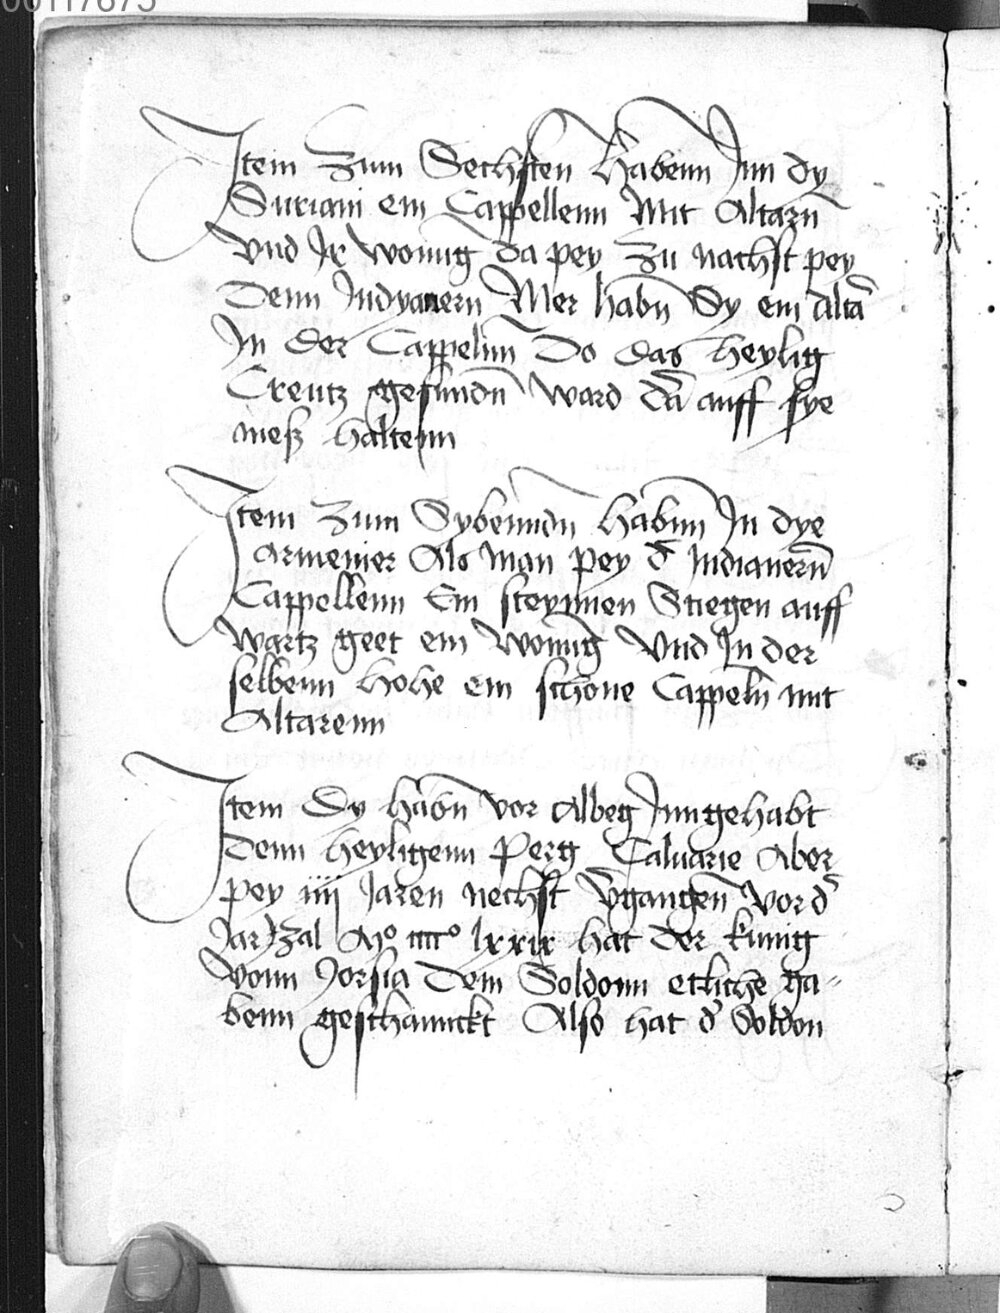 00117675
Item Zum Sechsten Habenn Inn dy
Suriani ein Cappellenn Mit Altarn
Vnd Ir Wonug da pey Zu nachst pey
Denn Indyanern Mer habn Sy ein Alta
In der Cappelnn Do das heylig
Creutz gefundn Ward da auff sye
meß haltenn
Item Zum Sybenndn habnn In dye
Armenier Als Man pey d Indianern
Cappellenn Ein steynnen Stiegen auff
wartz geet ein Wonug Vnd In der
selbenn Hohe ein schone Cappeln mit
Altarenn
Item Dy habn vor Albeg Inngehabt
Denn heyligenn Perg Caluarie Aber
pey iiij Jaren nechst vgangen Vor d
Jar Zal lxxix hat der kunig
vonn Jorsia Dem Soldonn etliche ga-
benn geschannckt Also hat d Soldon